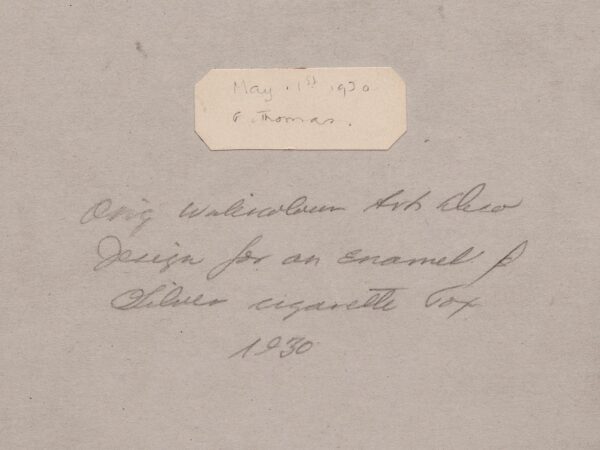 May. 1st 1930
G. Thomas.
Orig Watercolour Art Deco
Design for an Enamel &
Silver cigarette Box
1930